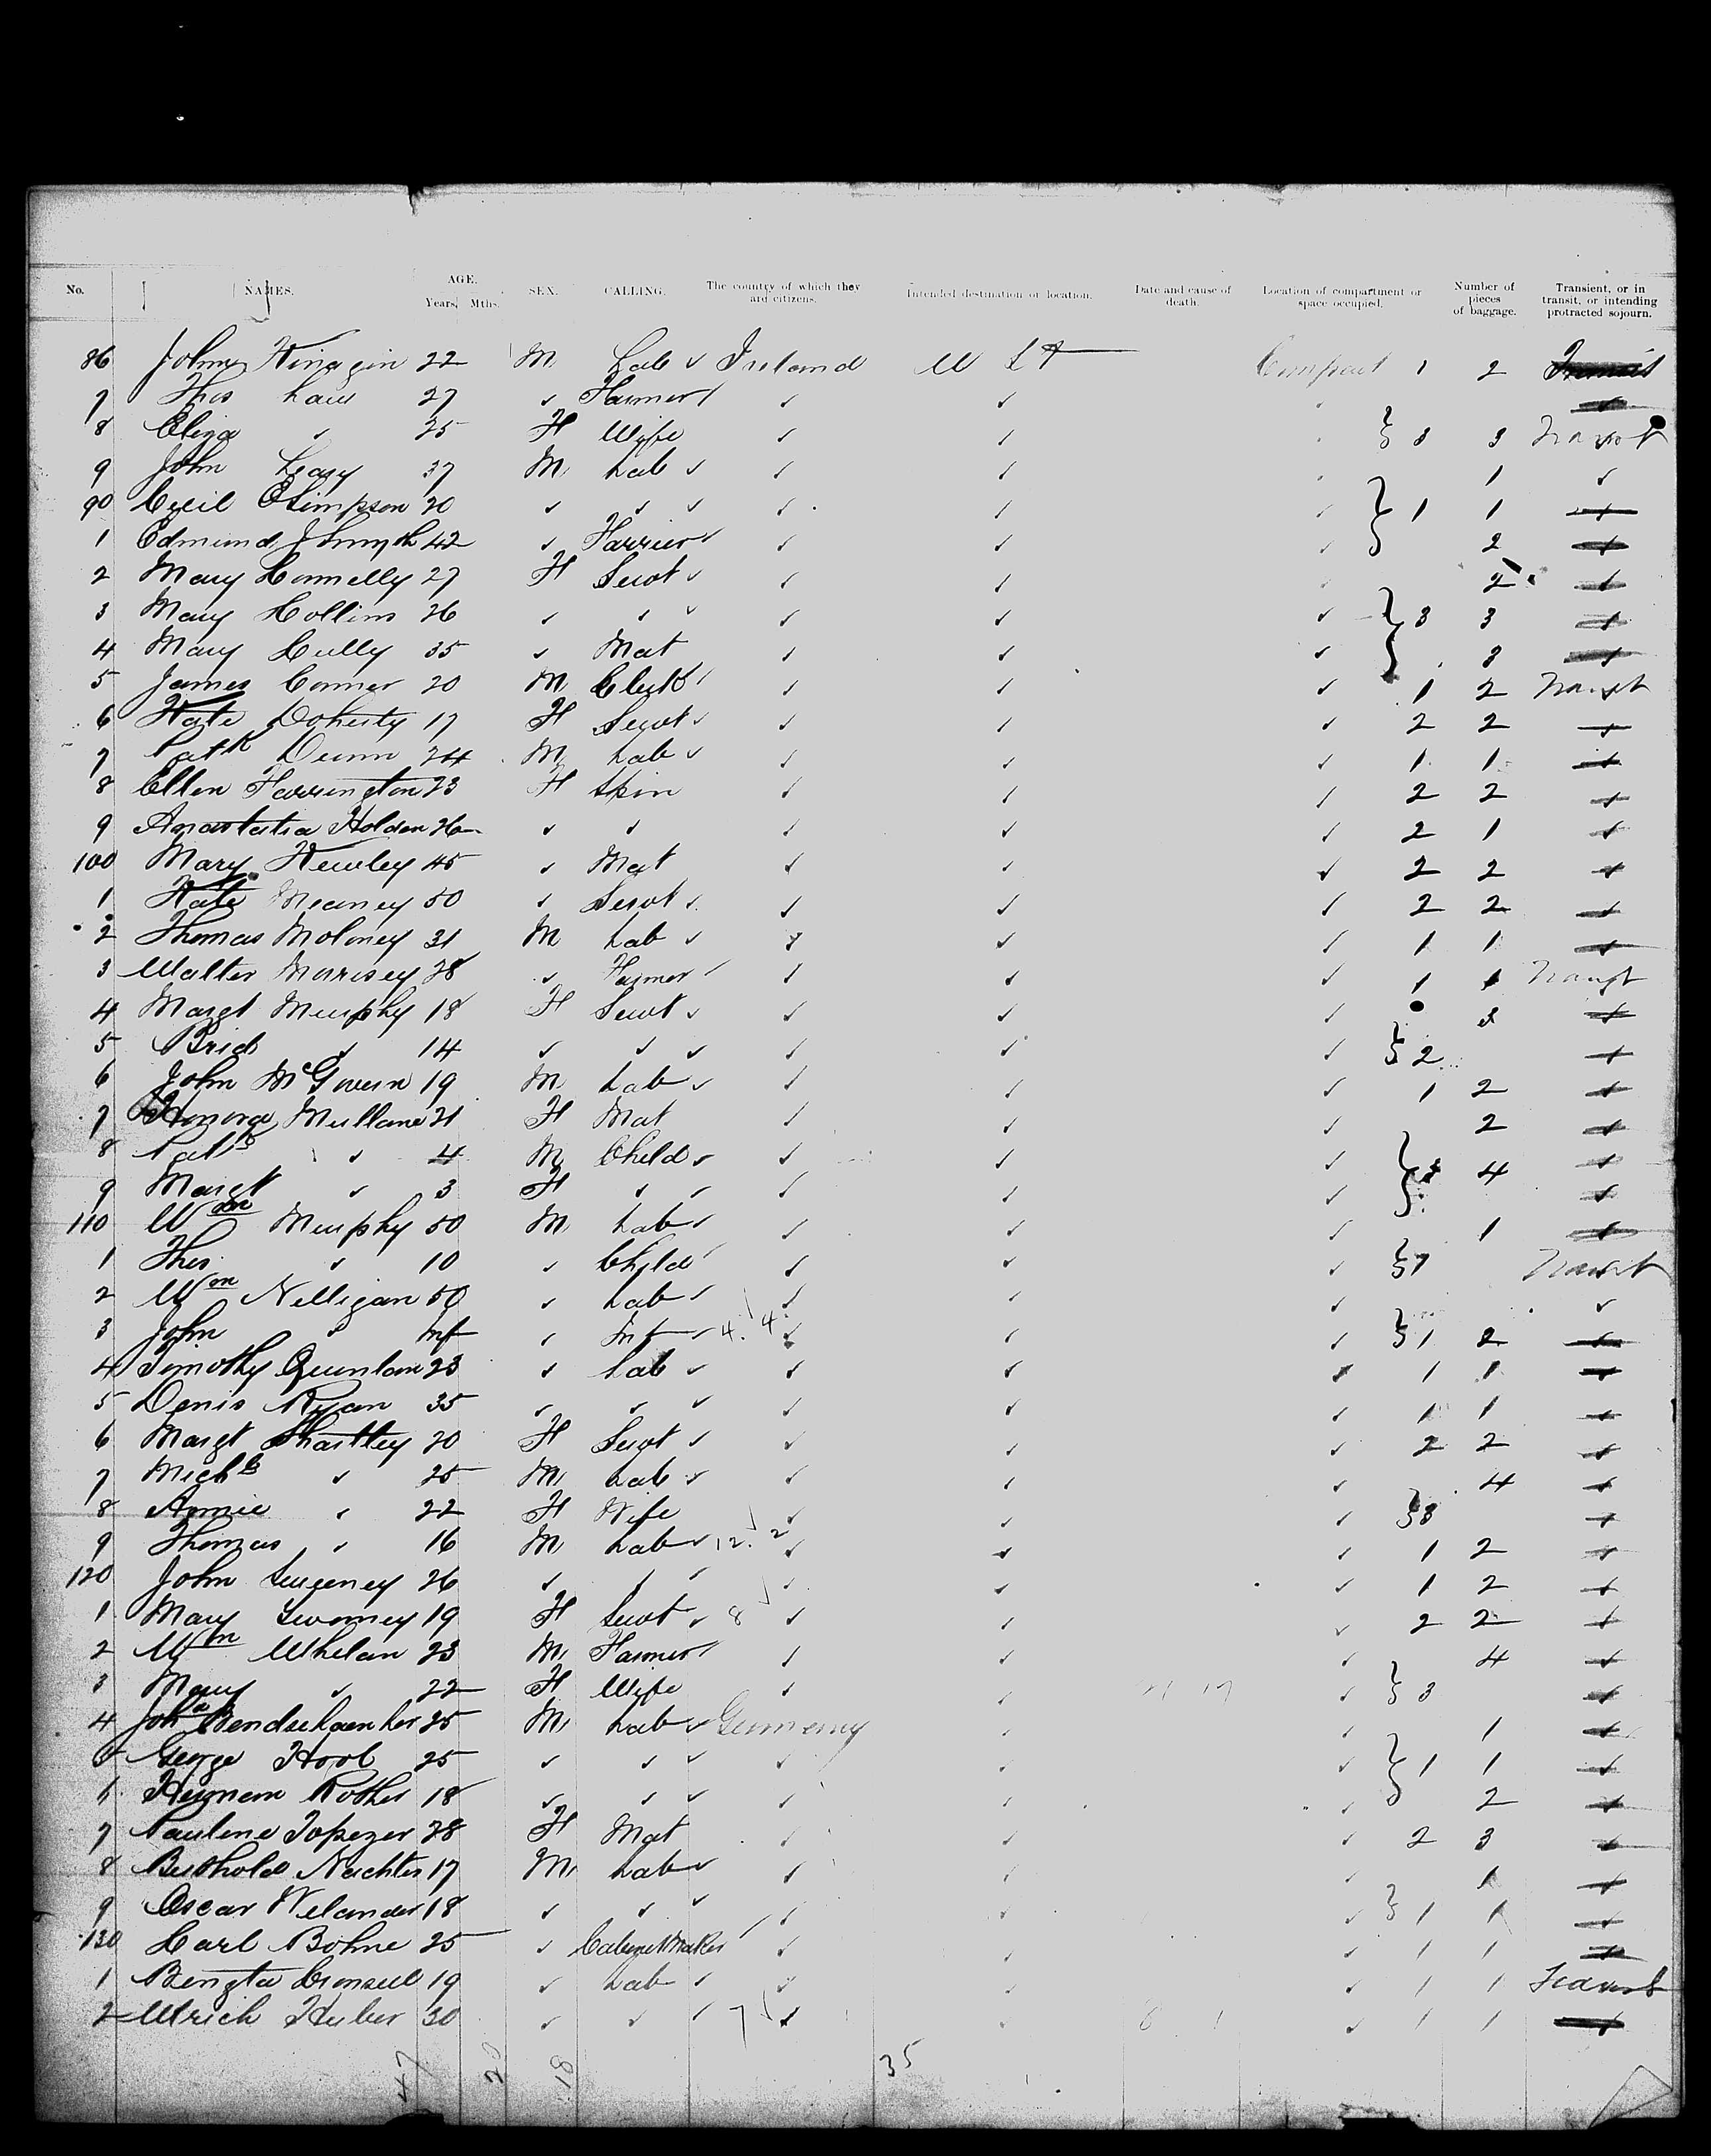 No. NAMES. AGE. Years. Mths. SEX. CALLING. The country of which they are citizens. Intended destination or location. Date and cause of death. Location of compartment or space occupied. Number of pieces of baggage. Transient, or in transit, or intending protracted sojourn.
86 John 22 M Lab ✓ Ireland U St 1 2
7 Thos 27 ✓ Farmer ✓ ✓
8 Eliza ✓ 25 F Wife ✓ ✓ 3 3 Transit
9 John Leary 37 M Lab ✓ ✓ ✓ 1 ✓
90 Cecil E Simpson 20 ✓ ✓ ✓ ✓ ✓ 1 1
1 Edmund 42 ✓ Farrier ✓ ✓ 2
2 Mary Connelly 27 F Servt ✓ ✓ ✓ 2
3 Mary Collins 26 ✓ ✓ ✓ ✓ ✓ 3 3
4 Mary Cully 35 ✓ Mat ✓ ✓ ✓ 3
5 James Connor 20 M Clerk ✓ ✓ ✓ 1 2 Transit
6 Kate Doherty 17 F Servt ✓ ✓ ✓ ✓ 2 2
7 Patk Dunn 24 M Lab ✓ ✓ ✓ ✓ 1 1
8 Ellen Farrington 23 F Spin ✓ ✓ ✓ 2 2
9 Anastatia Holden 26 ✓ ✓ ✓ ✓ ✓ 2 1
100 Mary Hewley 45 ✓ Mat ✓ ✓ ✓ 2 2
1 Kate Meaney 50 ✓ Servt ✓ ✓ ✓ ✓ 2 2
2 Thomas Moloney 31 M Lab ✓ ✓ ✓ ✓ 1 1
3 Walter Morrisey 28 ✓ Farmer ✓ ✓ ✓ 1 1 Transit
4 Margt Murphy 18 F Servt ✓ ✓ ✓ ✓ 3
5 Brid ✓ 14 ✓ ✓ ✓ ✓ ✓ ✓ 2
6 John McGovern 19 M Lab ✓ ✓ ✓ ✓ 1 2
7 Honora Mullane 21 F Mat ✓ ✓ ✓ 2
8 Patk ✓ 4 M Child ✓ ✓ ✓ ✓ 4
9 Margt ✓ 3 F ✓ ✓ ✓ ✓ ✓
110 Wm Murphy 50 M Lab ✓ ✓ ✓ ✓ 1
1 Thos ✓ 10 ✓ Child ✓ ✓ ✓ 1 Transit
2 Wm Nelligan 50 ✓ Lab ✓ ✓ ✓ ✓ ✓
3 John ✓ Inf ✓ Inf ✓ 4. 4. ✓ ✓ ✓ 1 2
4 Timothy Quinlan 23 ✓ Lab ✓ ✓ ✓ ✓ 1 1
5 Denis Ryan 35 ✓ ✓ ✓ ✓ ✓ ✓ 1 1
6 Margt 20 F Servt ✓ ✓ ✓ ✓ 2 2
7 Michl ✓ 25 M Lab ✓ ✓ ✓ ✓ 4
8 Annie ✓ 22 F Wife ✓ ✓ ✓ 3
9 Thomas ✓ 16 M Lab ✓ 12. 2 ✓ ✓ ✓ 1 2
120 John Sweeney 26 ✓ ✓ ✓ ✓ ✓ ✓ 1 2
1 Mary Swomey 19 F Servt ✓ 8 ✓ ✓ ✓ 2 2
2 Wm Whelan 23 M Farmer ✓ ✓ ✓ 4
3 Mary ✓ 22 F Wife ✓ ✓ ✓ 3
4 25 M Lab ✓ Germany ✓ ✓ 1
5 George 25 ✓ ✓ ✓ ✓ ✓ ✓ 1 1
6 Herman Rother 18 ✓ ✓ ✓ ✓ ✓ ✓ 2
7 Pauline 28 F Mat ✓ ✓ ✓ 2 3
8 Berthold 17 M Lab ✓ ✓ ✓ ✓ 1
9 Oscar Welander 18 ✓ ✓ ✓ ✓ ✓ ✓ 1 1
130 Carl Bohne 25 ✓ Cabinet Maker ✓ ✓ ✓ 1 1
1 Bengta 19 ✓ Lab ✓ ✓ ✓ ✓ 1 1 Transit
2 Ulrich Huber 30 ✓ ✓ ✓ 7 ✓ ✓ ✓ 1 1
47 29 18 35